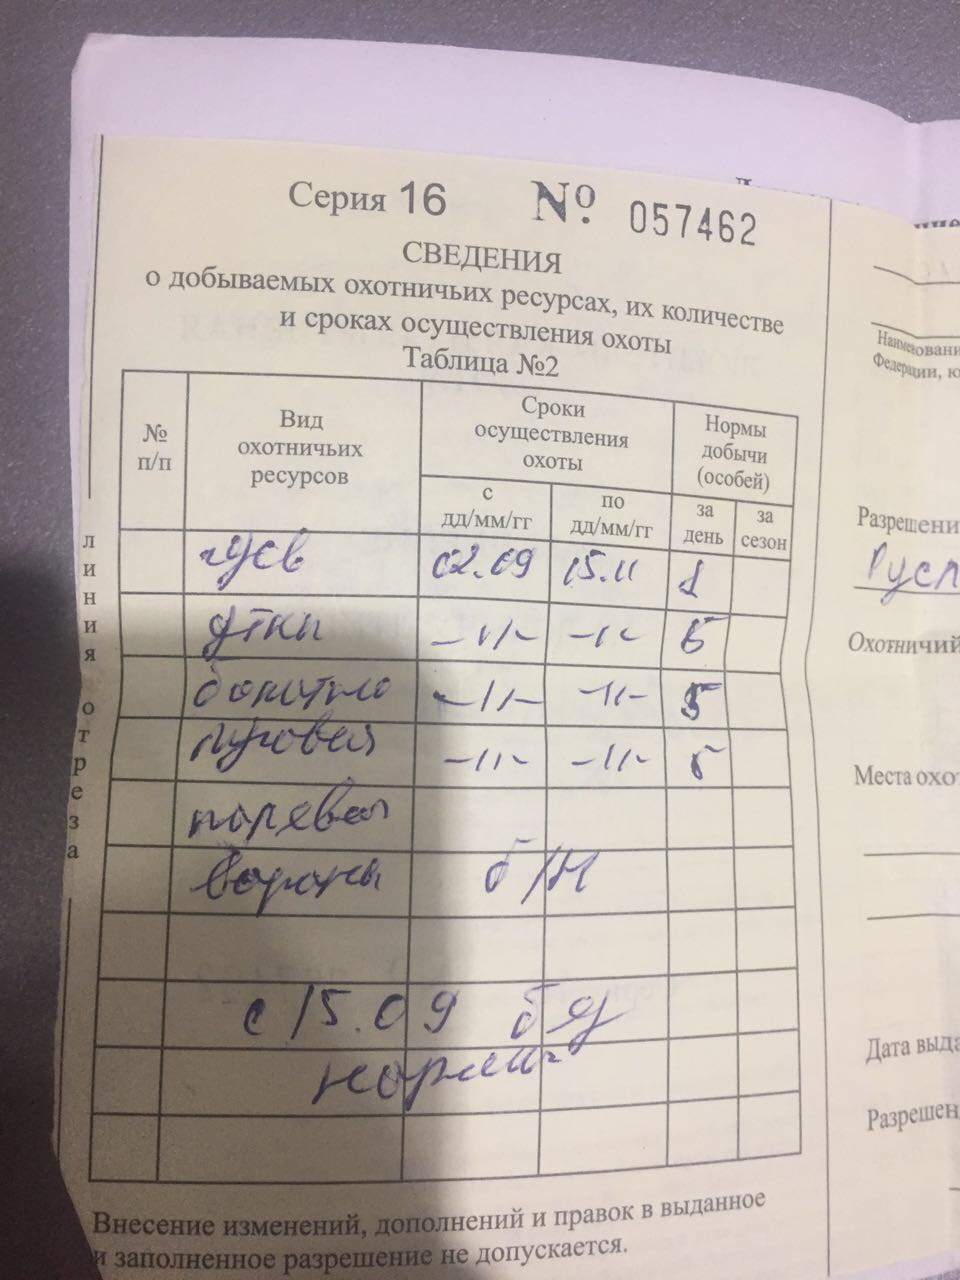 Серия 16 № 057462
СВЕДЕНИЯ
о добываемых охотничьих ресурсах, их количестве
и сроках осуществления охоты
Таблица №2
№ п/п
Вид охотничьих ресурсов
Сроки осуществления охоты
Нормы добычи (особей)
с дд/мм/гг
по дд/мм/гг
за день
за сезон
гуси 02.09 15.11
утки -//- -//- 5
болотно -//- -//- 5
луговая -//- -//- 5
полевая
вороны б/н
с 15.09
нормы
Внесение изменений, дополнений и правок в выданное
и заполненное разрешение не допускается.
линия отреза
Федерации, ю
Разрешени
Охотничий
Места охо
Дата выда
Разрешен